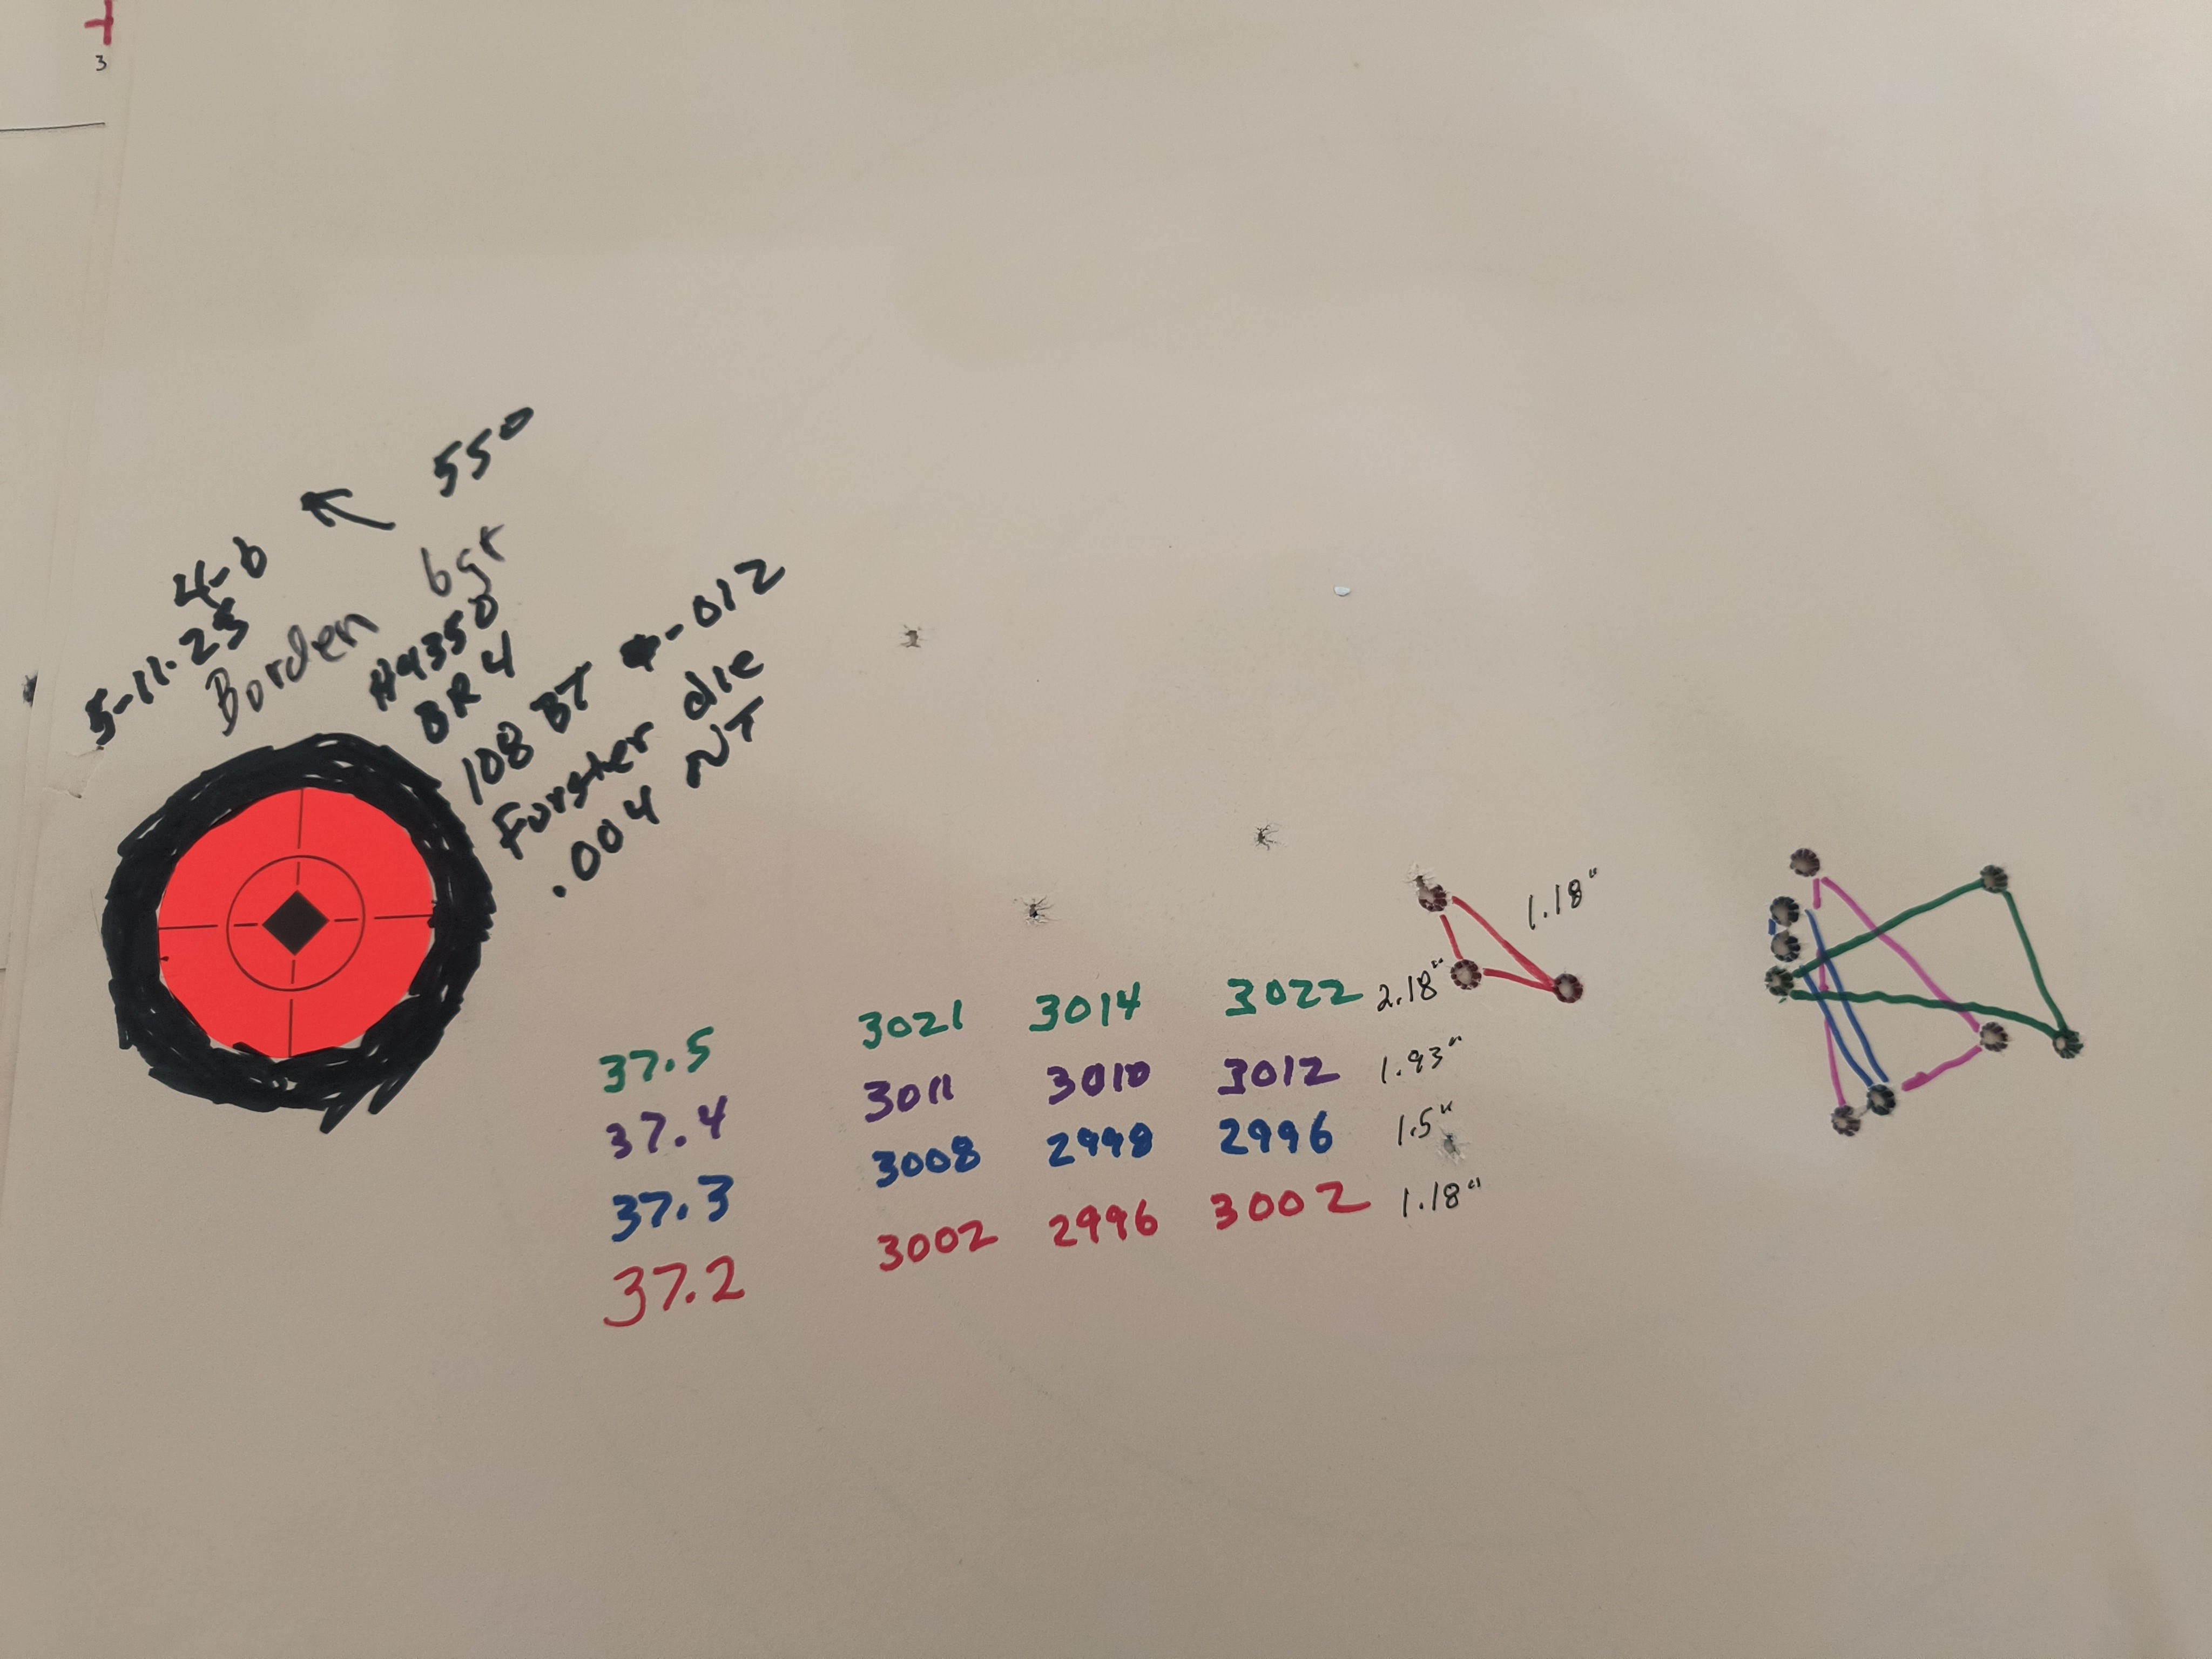 3
550
4-6
5-11-25
Borden 6gt
H4350
BR4
108 BT -012
Forster die
.004 NT
1.18"
37.5 3021 3014 3022 2.18"
37.4 3011 3010 3012 1.93"
37.3 3008 2998 2996 1.5"
37.2 3002 2996 3002 1.18"